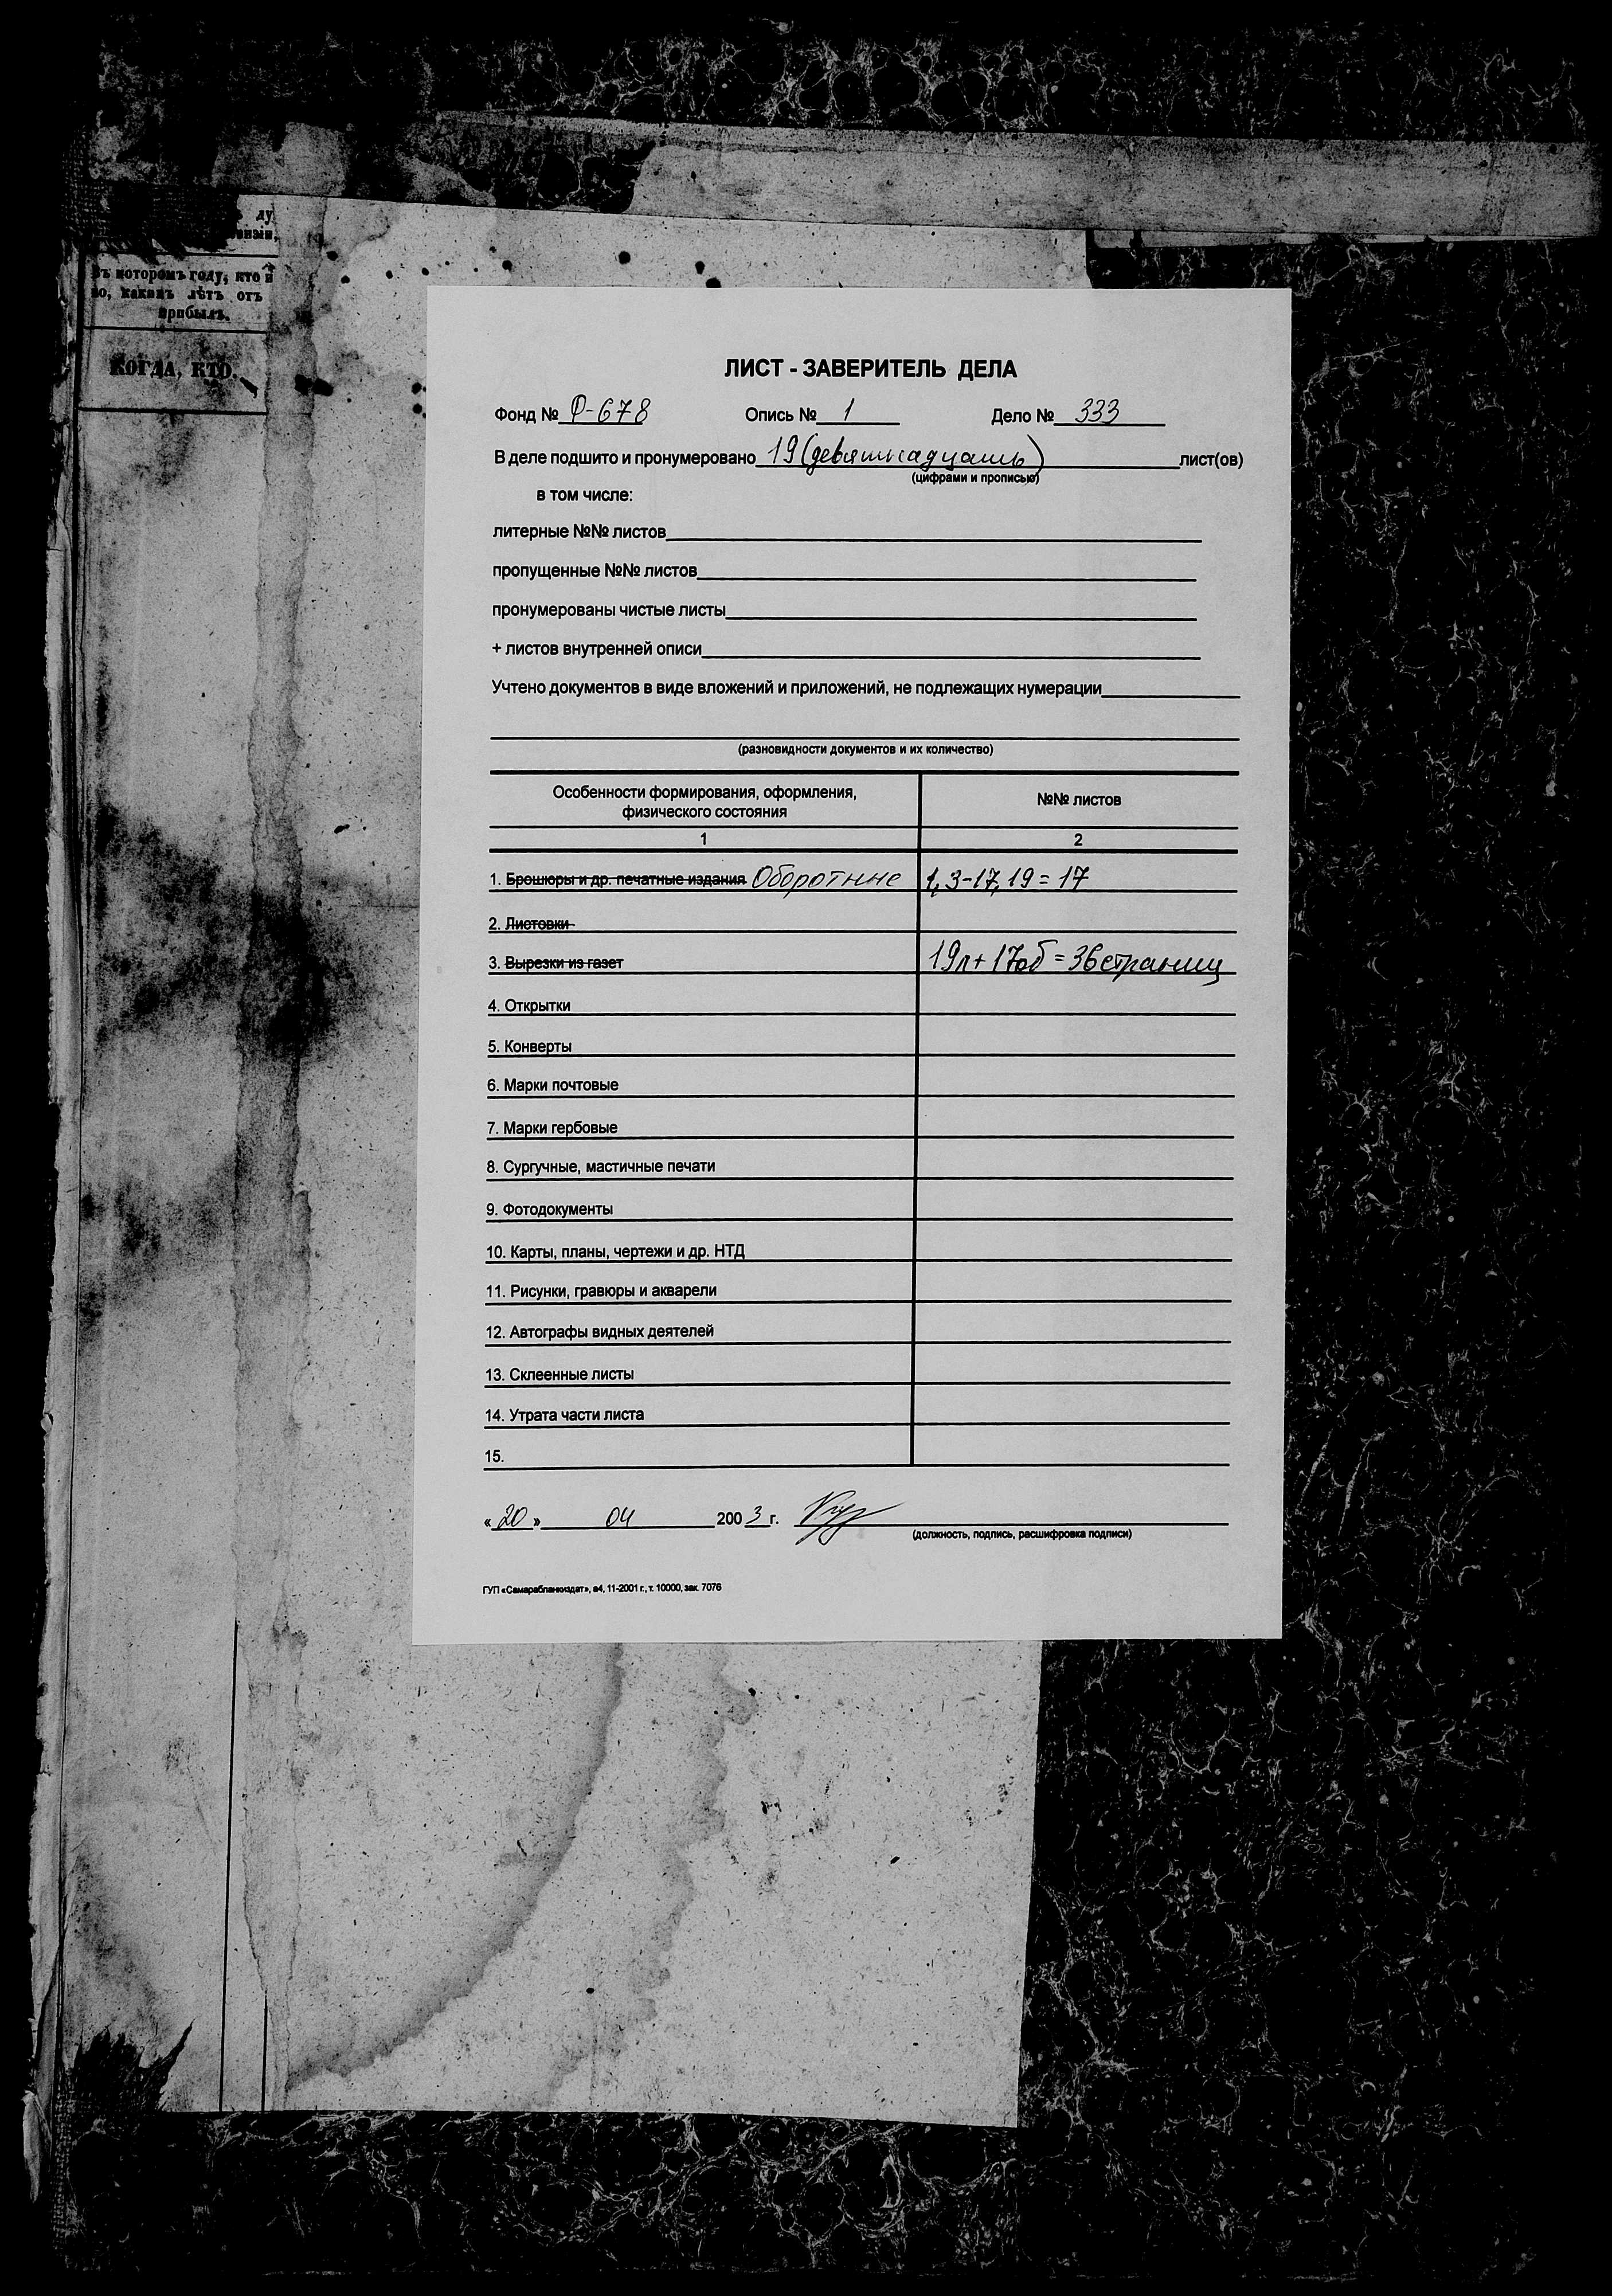 ду
визіи,
въ которомъ году, кто и
но, какихъ лѣтъ отъ
прибылъ.
КОГДА, КТО.
ЛИСТ - ЗАВЕРИТЕЛЬ ДЕЛА
Фонд № Ф-678 Опись № 1 Дело № 333
В деле подшито и пронумеровано 19 (девятнадцать) лист(ов)
(цифрами и прописью)
в том числе:
литерные №№ листов
пропущенные №№ листов
пронумерованы чистые листы
+ листов внутренней описи
Учтено документов в виде вложений и приложений, не подлежащих нумерации
(разновидности документов и их количество)
Особенности формирования, оформления, №№ листов
физического состояния
1 2
1. Брошюры и др. печатные издания Оборотные 1, 3-17, 19 = 17
2. Листовки
3. Вырезки из газет 19л + 17об = 36 страниц
4. Открытки
5. Конверты
6. Марки почтовые
7. Марки гербовые
8. Сургучные, мастичные печати
9. Фотодокументы
10. Карты, планы, чертежи и др. НТД
11. Рисунки, гравюры и акварели
12. Автографы видных деятелей
13. Склеенные листы
14. Утрата части листа
15.
« 20 » 04 2003 г.
(должность, подпись, расшифровка подписи)
ГУП «Самарабланкиздат», а4, 11-2001 г., т. 10000, зак. 7076